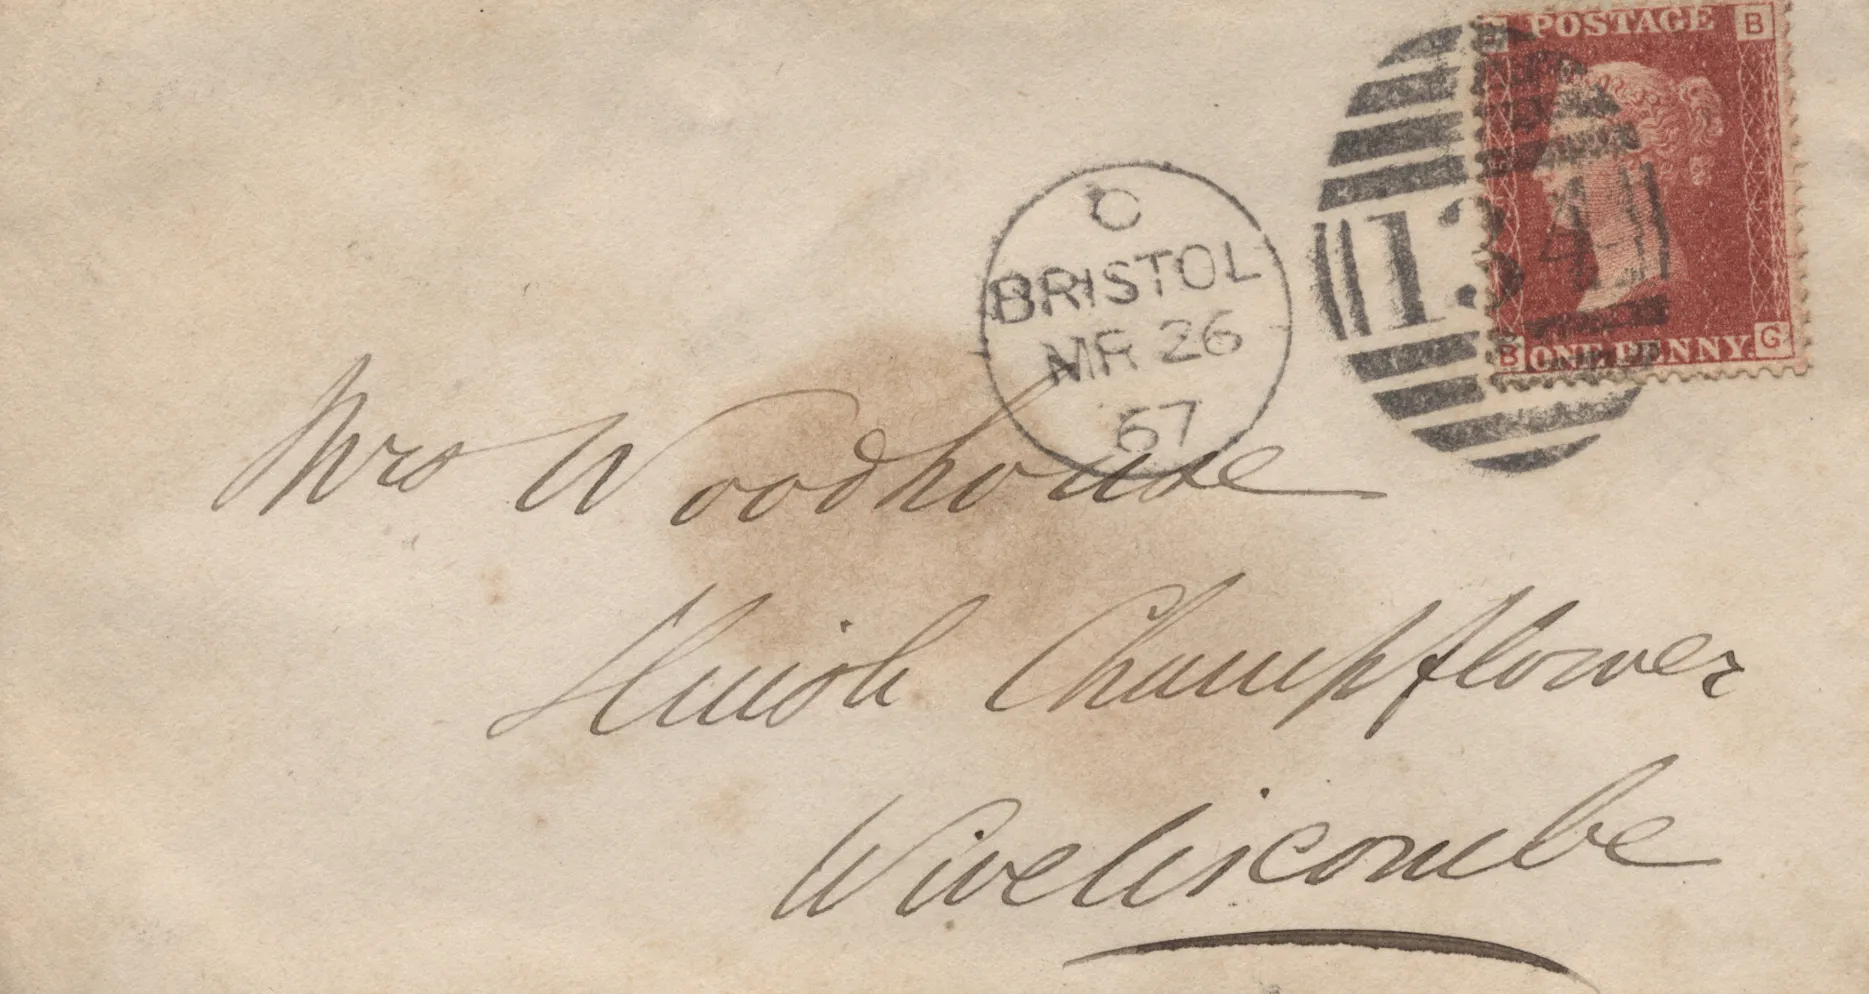 POSTAGE
B
C
BRISTOL
MR 26
67
134
B ONE PENNY G
Mrs Woodhouse
Huish Champflower
Wiveliscombe